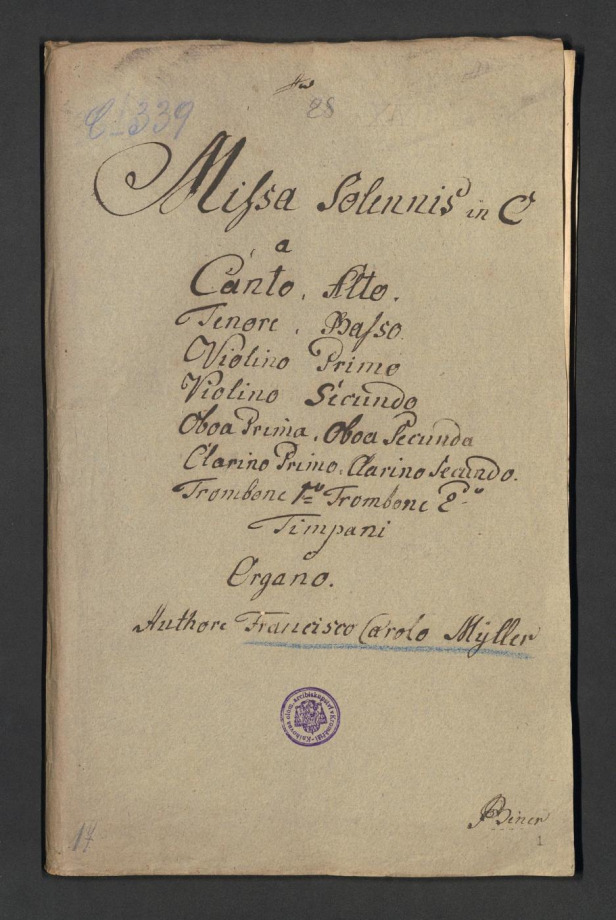 28
C 339
Missa Solennis in C
a
Canto. Alto.
Tenore. Basso.
Violino Primo
Violino Secundo
Oboa Prima. Oboa Secunda
Clarino Primo. Clarino Secundo.
Trombone 1mo Trombone 2do
Timpani
Organo.
Authore Francisco Carolo Mÿller
Knihovna olom. arcibiskupství v Kroměříži
Biner
17
1